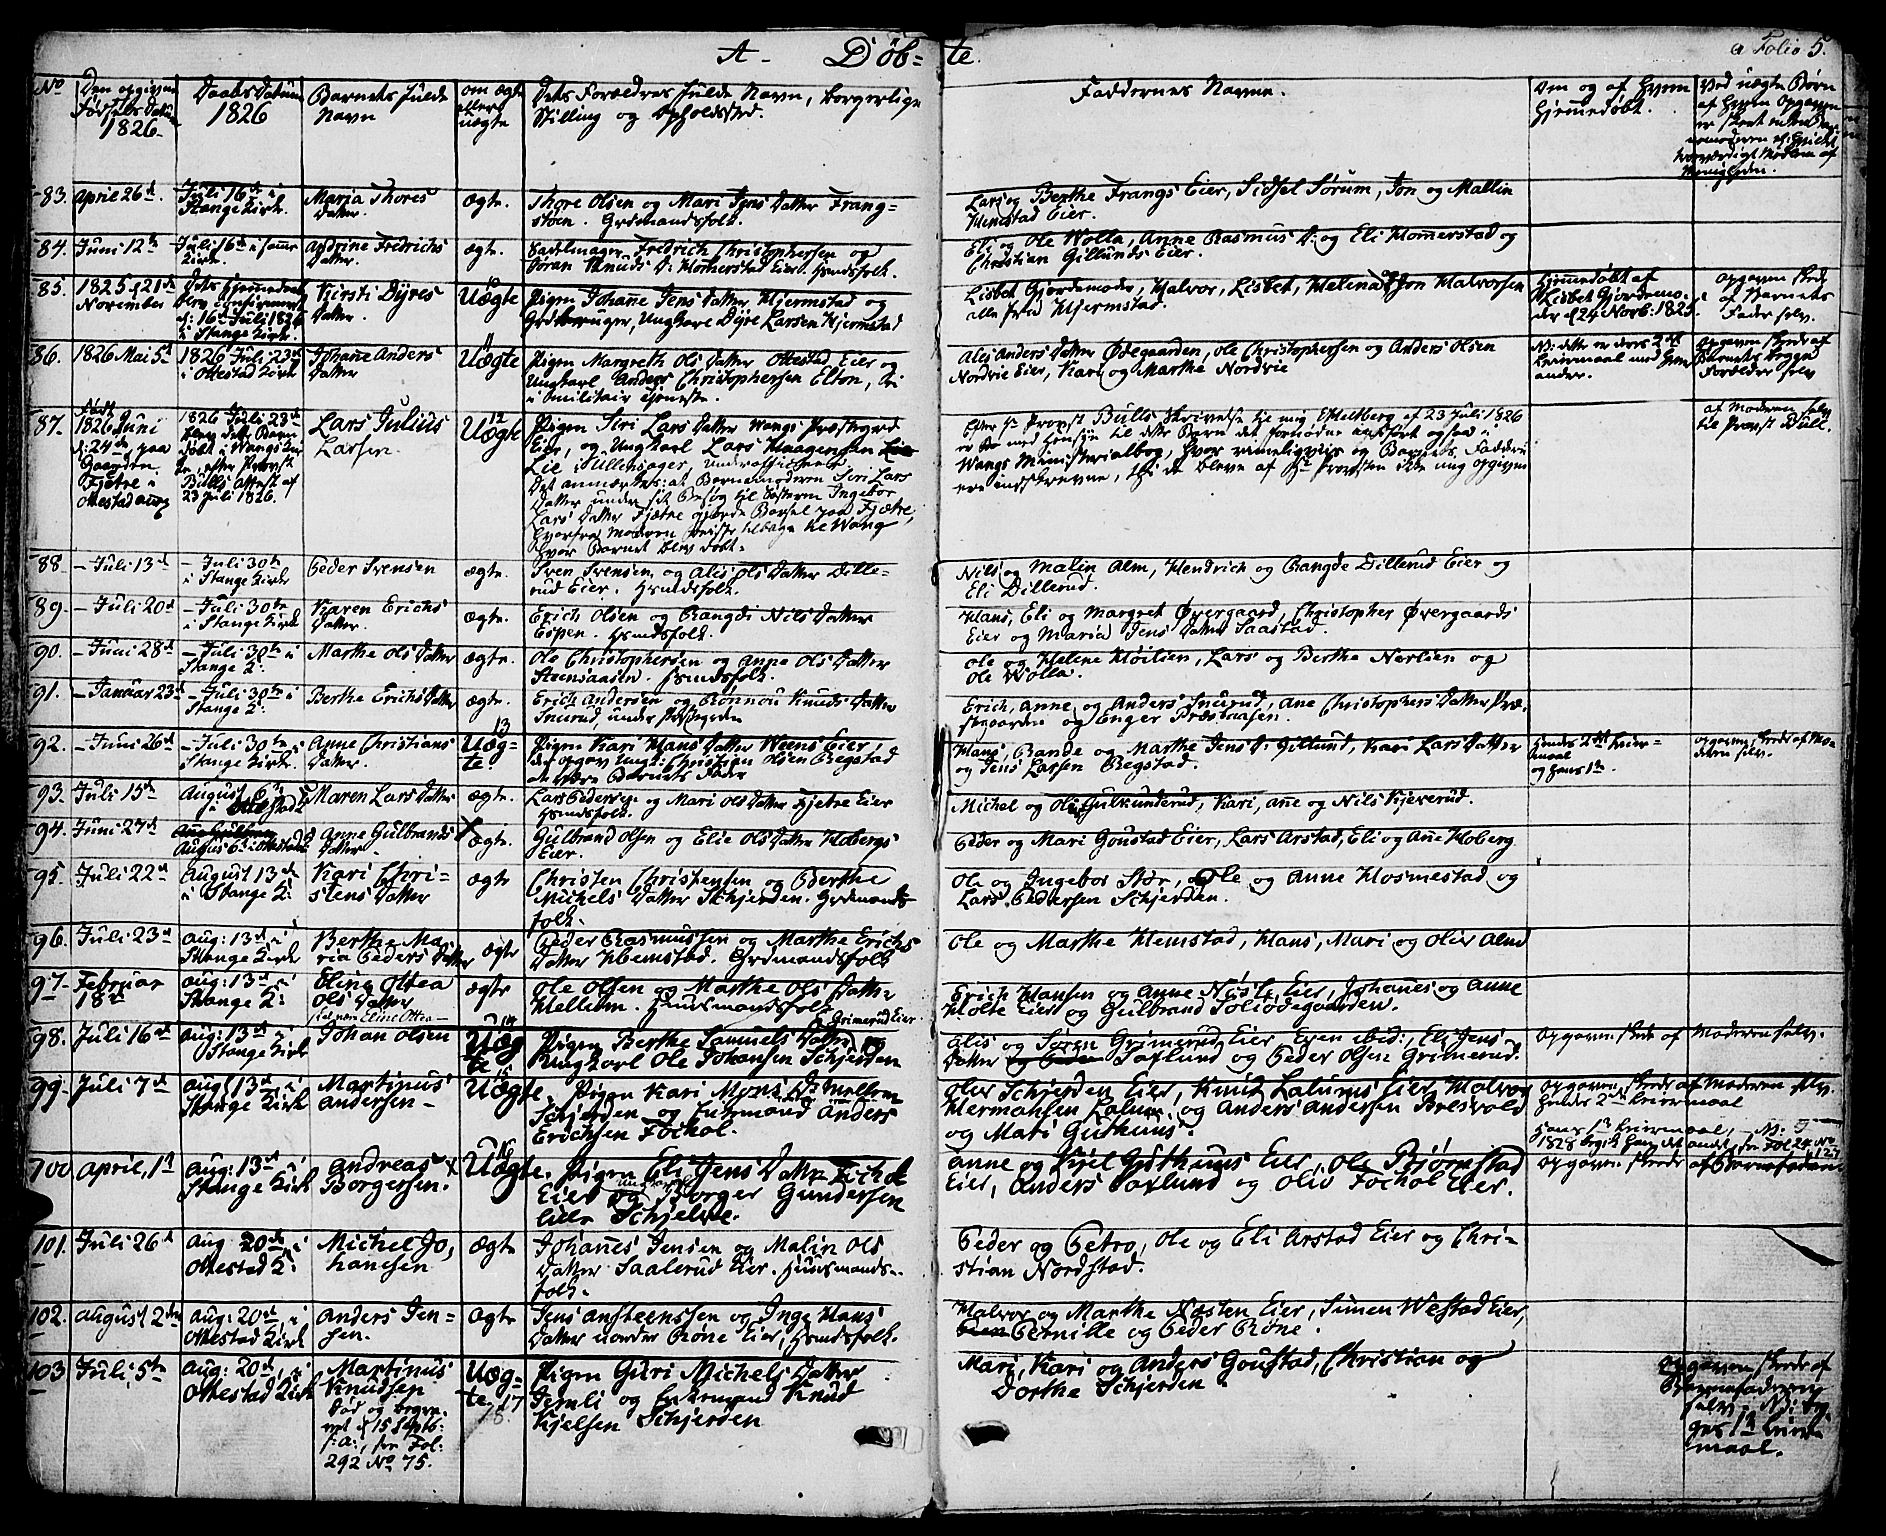 A- Döb- te.
a Folio 5.
No
Den opgivne Fødsels Datum 1826.
Daabs Datum 1826
Barnets fulde Navn
om ægte eller uægte
Dets Forældres fulde Navn, borgerlige Stilling og Opholdssted.
Faddernes Navne.
Naar og af hvem hjemmedøbt.
Ved uægte Børn af hvem Opgaven er skeet
83. April 26de. Juli 16de i Stange Kirke. Maria Thores Datter ægte. Thore Olsen og Mari Jens Datter Frang-
støen. Grdmandsfolk.
Lars og Berthe Frangs Eier, Sidsel Sørum, Jon og Mallin
Hemstad Eier.
84. Juni 12te Juli 16de i samme Kirke. Andrine Fredrichs Datter. ægte. Sadelmager Fredrich Christophersen og
Goran Knuds D: Homerstad Eier. Hmdsfolk.
Eli og Ole Wolla, Anne Rasmus D: og Eli Homerstad og
Christian Gillunds Eier.
85. 1825 d 21de November Dets hjemmedaab blev confirmeret d: 16de Juli 1826 i Stange Kirke. Kirsti Dyres Datter. Uægte Pigen Johanne Jens Datter Hjermstad og
Grdbruger, Ungkarl Dyre Larsen Hjermstad
Lisbet Gjordemoder, Halvor, Lisbet, Helena og Jon Halvorsen
alle fra Hjermstad.
Hjemmedøbt af Lisbet Gjordemoder d 24 Novb: 1825.
Opgaven skede af Barnets Fader selv.
86. 1826 Mai 5te 1826 Juli 23de i Ottestad Kirke Johanne Anders Datter 11 Uægte Pigen Margreth Ols Datter Ottestad Eier og
Ungkarl Anders Christophersen Elton,
i militair tjeneste.
Alis Anders Datter Ødegaarden, Ole Christophersen og Anders Olsen
Nordvie Eier, Kari og Marthe Nordvie
N: dette er deres 2det Leiermaal med hinanden.
Opgaven skede af Barnets begge Forældre selv
87. Født 1826 Juni d: 24de, paa Gaarden Fjetre i Ottestad sogn 1826 Juli 23de blev dette Barn døbt i Wangs Kirke, efter Provst Bulls Attest af 23 Juli 1826. Lars Julius Larsen. 12 Uægte Pigen Siri Lars Datter Wangs Præstegrd
Eier, og Ungkarl Lars Haagensen
Lie i Ullensager, Underofficeer
Det anmærkes: at Barnemoderen Siri Lars
Datter under sit Besøg til Søsteren Ingebor
Lars Datter Fjetre gjorde Barsel paa Fjetre,
hvorfra Moderen reiste tilbage til Wang
hvor Barnet blev døbt.
Efter Hr Provst Bulls Skrivelse til mig af 23 Juli 1826
er der med Hensyn til dette Barn det fornødne anført ogsaa i
Wangs Ministerialbog, hvor rimeligviis og Barnets Faddere
ere indskrevne, thi de bleve af Hr Provsten ikke mig opgivne
af Moderen selv til Provst Bull.
88. - Juli 13de - Juli 30te i Stange Kirke Peder Svensen ægte. Sven Svensen, og Alis Ols Datter Dille-
rud Eier. Hmdsfolk.
Nils og Malin Alm, Hendrich og Rangde Dillerud Eier og
Eli Dillerud.
89. - Juli 20de - Juli 30te i Stange Kirke Karen Erichs Datter. ægte. Erich Olsen og Rangdi Nils Datter
Espen. Hmdsfolk.
Hans, Eli og Margret Øvergaard, Christopher Øvergaards
Eier og Maria Jens Datter Saastad.
90. - Juni 28de - Juli 30te i Stange K: Marthe Ols Datter ægte. Ole Christophersen og Anne Ols Datter
Steensaasen. Hmdsfolk.
Ole og Helene Høilien, Lars og Berthe Nerlien og
Ole Wolla.
91. - Januar 23de - Juli 30te i Stange K: Berthe Erichs Datter ægte. Erich Andersen og Rønnou Knuds Datter
Snerud, under Præstegrden
Erich, Anne og Anders Snerud, Ane Christophers Datter Præ-
stegaarden og Enger Præstaasen.
92. - Juni 26de - Juli 30te i Stange Kirke. Anne Christians Datter. 13 Uæg-te. Pigen Kari Hans Datter Weens Eier,
den opgav Ungk: Christian Olsen Begstad
at være Barnets Fader
Hans, Rande og Marthe Jens D: Gillund, Kari Lars Datter
og Jens Larsen Begstad.
Hendes 2det Leiermaal og hans 1te
Opgaven skede af Moderen selv.
93. Juli 15de August 6te i Ottestad Maren Lars Datter ægte. Lars Pedersen og Mari Ols Datter Fjetre Eier
Hmdsfolk.
Michel og Ole Gulkunderud, Kari, Ane og Nils Kjeverud.
94. Juni 27de August 6te i Ottestad Anne Gulbrands Datter. Xægte. Gulbrand Olsen og Elie Ols Datter Hobergs
Eier.
Peder og Mari Goustad Eier, Lars Arstad, Eli og Ane Hoberg
95. Juli 22de August 13de i Stange K: Kari Chri-stens Datter ægte Christen Christensen og Berthe
Michels Datter Schjerden. Grdmands-
folk.
Ole og Ingebor Stør, Ole og Anne Hosmestad og
Lars Pedersen Schjerden.
96. Juli 23de Aug: 13de i Stange Kirke Berthe Ma-ria Peders Datter ægte Peder Rasmussen og Marthe Erichs
Datter Hemstad. Grdmandsfolk
Ole og Marthe Hemstad, Hans, Mari og Oliv Alm
97. Februar 18de Aug: 13de i Stange K: Eline Ottea Ols Datter ægte Ole Olsen og Marthe Ols Datter
Mellem. Huusmandsfolk.
Erich Hansen og Anne Eier, Johanes og Anne
Holte Eier og Gulbrand Soliødegaarden.
98. Juli 16de Aug: 13de i Stange Kirke Johan Olsen 14 Uæg-te Pigen Berthe Samuels Datter Grimerud Eier og
Ungkarl Ole Johansen Schjerden
Alis og Søren Grimerud Eier, Even ibid:, Eli Jens
Datter Saxlund og Peder Olsen Grimerud.
Opgaven skede af Moderen selv.
99. Juli 7de Aug: 13de i Stange Kirke Martinus Andersen 15 Uægte. Pigen Kari Mons D: Mellem
Schjerden og Enkemand Anders
Erichsen Fockol.
Oliv Schjerden Eier, Knud Latums Eier, Halvor
Hermansen Latum og Anders Andersen Breivold
og Mari Guthuus.
Opgaven skede af Moderen selv.
Hendes 2det Leiermaal
Hans 1te Leiermaal,
100 April, 1te Aug: 13de i Stange Kirk Andreas Borgersen. X 16 Uægte. Pigen Eli Jens Datter Fockol
Eier og Borger Gundersen
Schjelve.
Anne og Kjel Guthuus Eier, Ole Bjørnstad
Eier, Anders Saxlund og Oliv Fockol Eier.
Opgaven skede af Barnefaderen
101. Juli 26de Aug 20de i Ottestad K: Michel Jo-hanesen ægte Johanes Jensen og Malin Ols
Datter Saalerud Eier. Huusmands-
folk.
Peder og Petro, Ole og Eli Arstad Eier og Chri-
stian Nordstad.
102. August 2den Aug: 20de, i Ottestad Kirke Anders Jen-sen. ægte Jens Ansteenssen og Inge Hans
Datter nordre Røne Eier, Hmdsfolk.
Halvor og Marthe Næsten Eier, Simen Westad Eier,
Pernille og Peder Røne.
103 Juli, 5te Aug: 20de, i Ottestad Kirke Martinus Knudsen
Død og begra-vet d 15 Septb: s: a:, see Fol: 292 No 75.
Uæg-te. 17 Pigen Guri Michels Datter
Jemli og Enkemand Knud
Kjelsen Schjerden
Mari, Kari og Anders Goustad, Christian og
Dorthe Schjerden.
Opgaven skede af Barnefaderen selv. N: begges 1te Leiermaal.